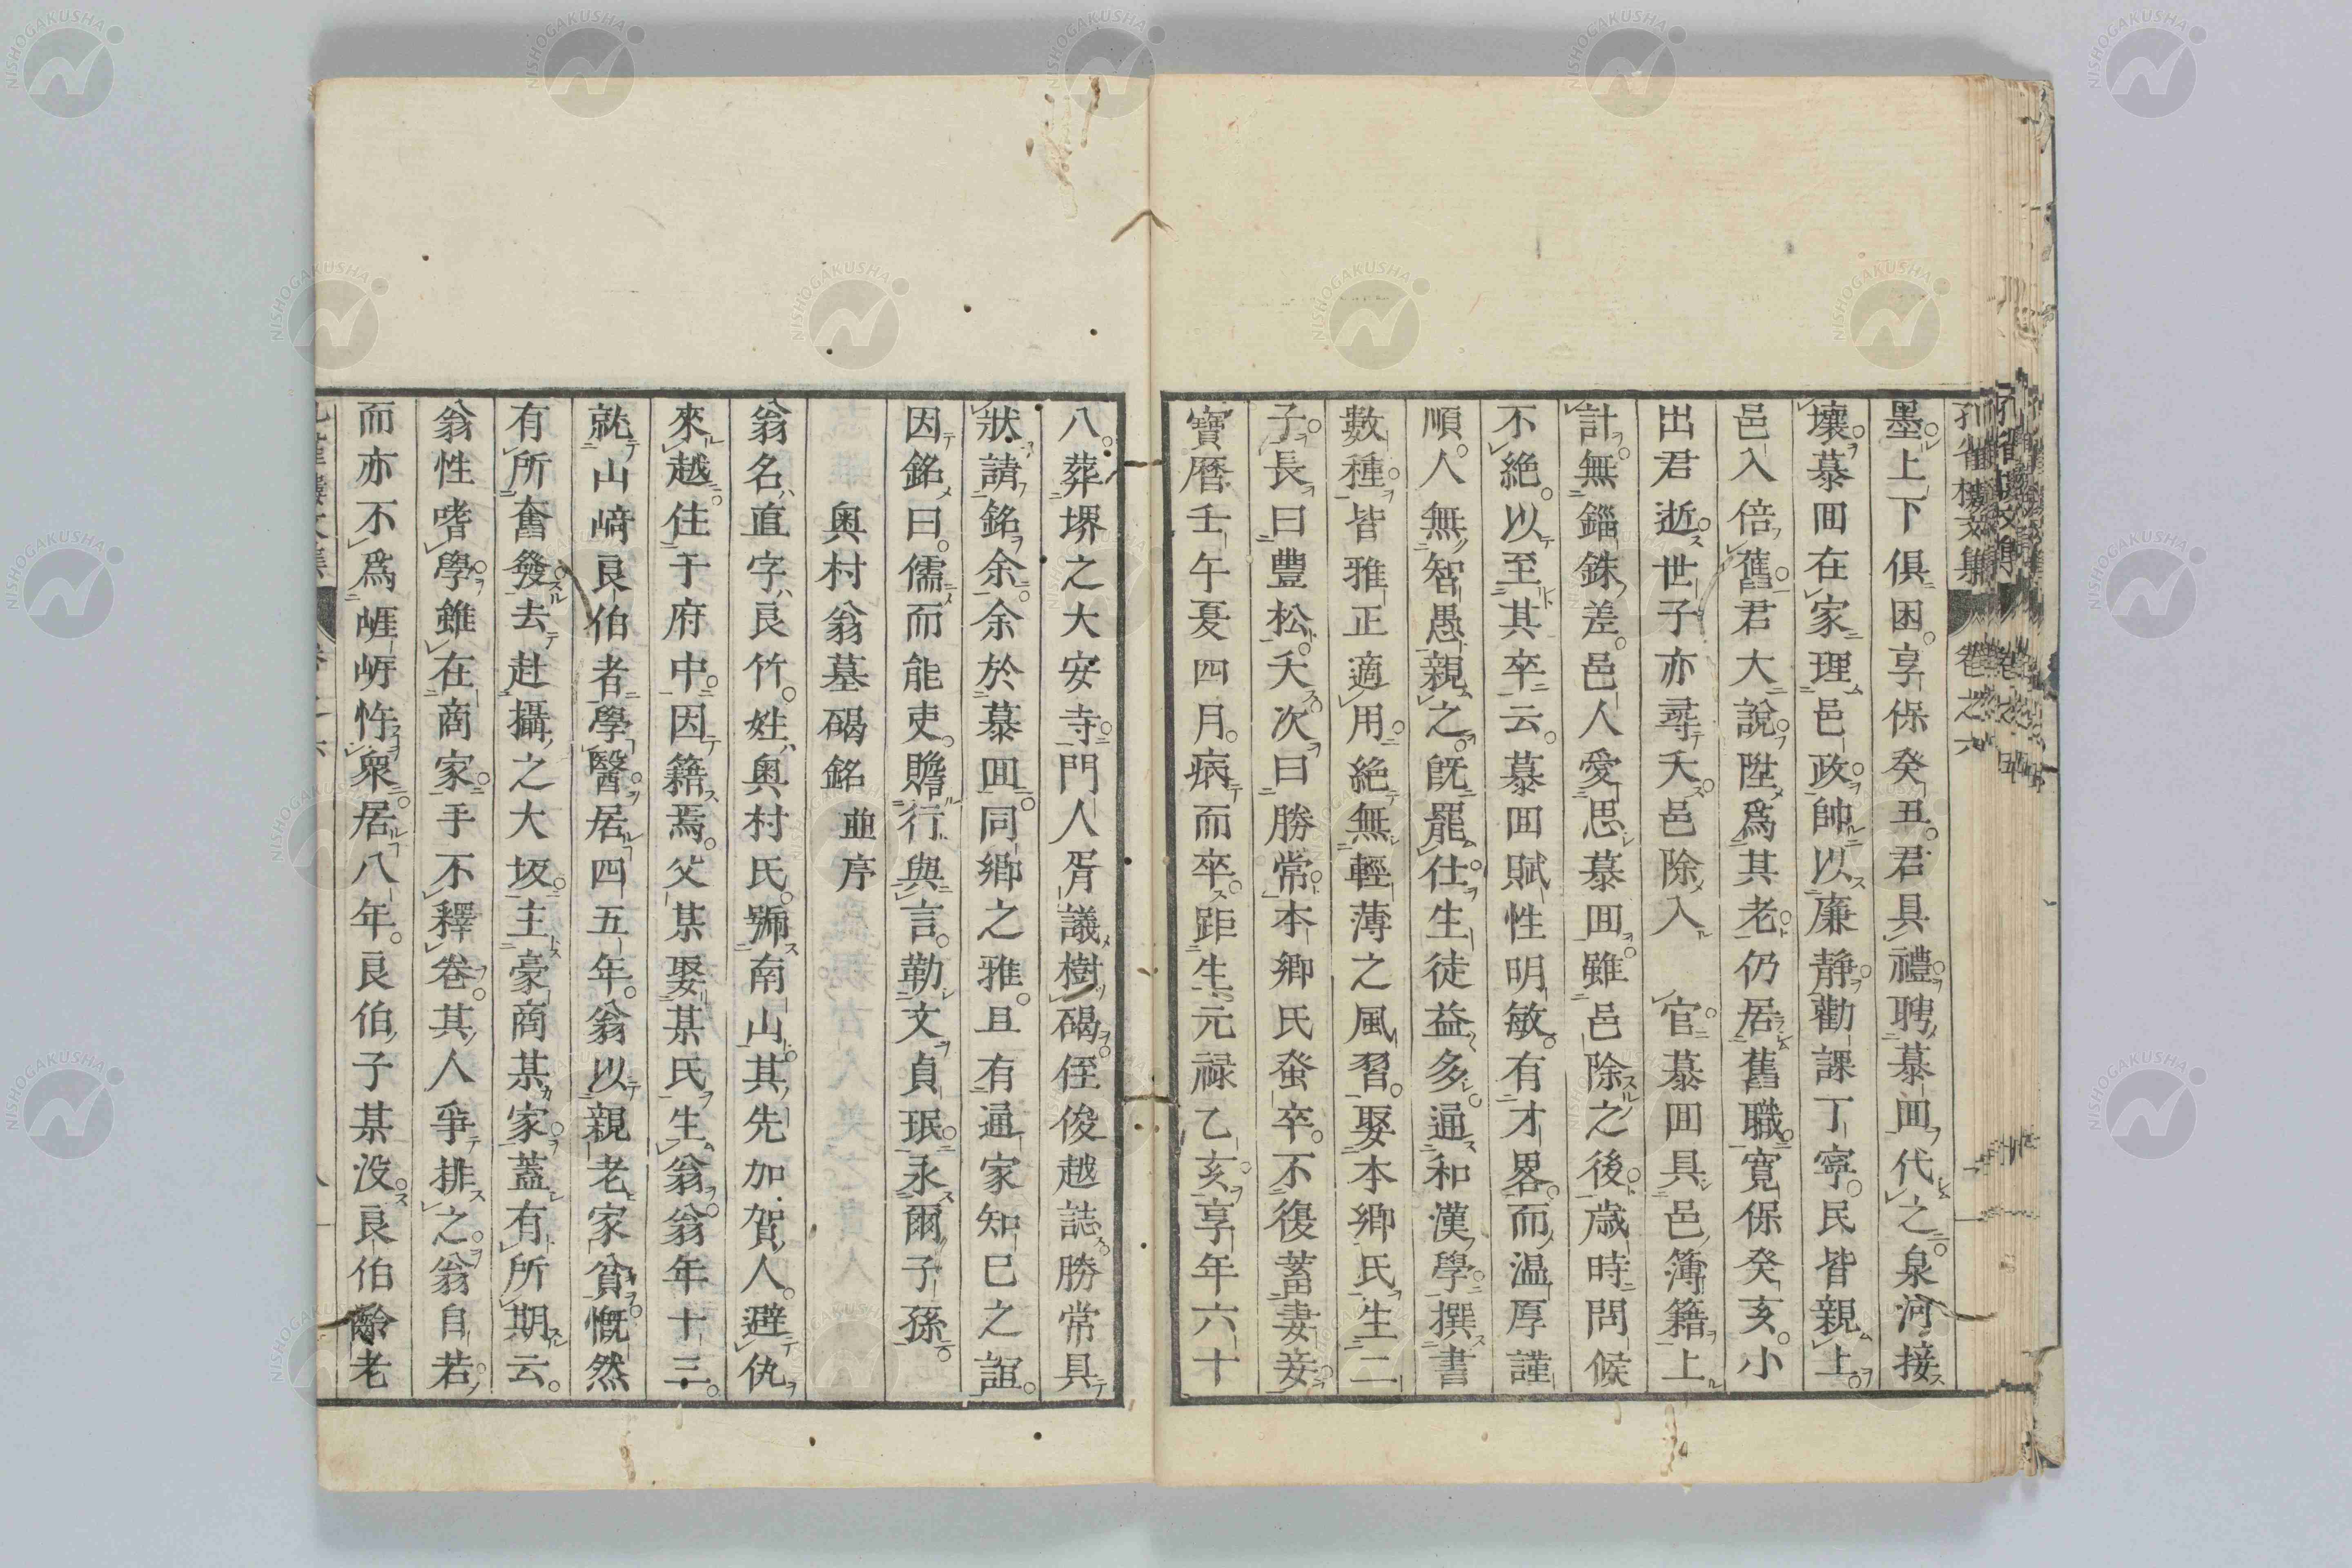 孔雀樓文集 卷之六
墨上下俱困享保癸丑君具禮聘慕回代之泉河接
壤慕回在家理邑政帥以廉靜勸課丁寧民皆親上
邑入倍舊君大說陞爲其老仍居舊職寬保癸亥小
出君逝世子亦尋夭邑除入 官慕回具邑簿籍上
計無錙銖差邑人愛思慕回雖邑除之後歳時問候
不絶以至其卒云慕回賦性明敏有才畧而温厚謹
順人無智愚親之既罷仕生徒益多通和漢學撰書
數種皆雅正適用絶無輕薄之風習娶本郷氏生二
子長曰豐松夭次曰勝常本郷氏蚤卒不復蓄妻妾
寶曆壬午夏四月病而卒距生元禄乙亥享年六十
八葬堺之大安寺門人胥議樹碣侄俊越誌勝常具
狀請銘余余於慕回同郷之雅且有通家知已之誼
因銘曰儒而能吏贍行與言勒文貞珉永爾子孫
奥村翁墓碣銘 並序
翁名直字良竹姓奥村氏號南山其先加賀人避仇
來越住于府中因籍焉父某娶某氏生翁翁年十三
就山﨑良伯者學醫居四五年翁以親老家貧慨然
有所奮發去赴攝之大坂主豪商某家蓋有所期云
翁性嗜學雖在商家手不釋卷其人爭排之翁自若
而亦不爲崕㟁忤衆居八年良伯子某没良伯齡老